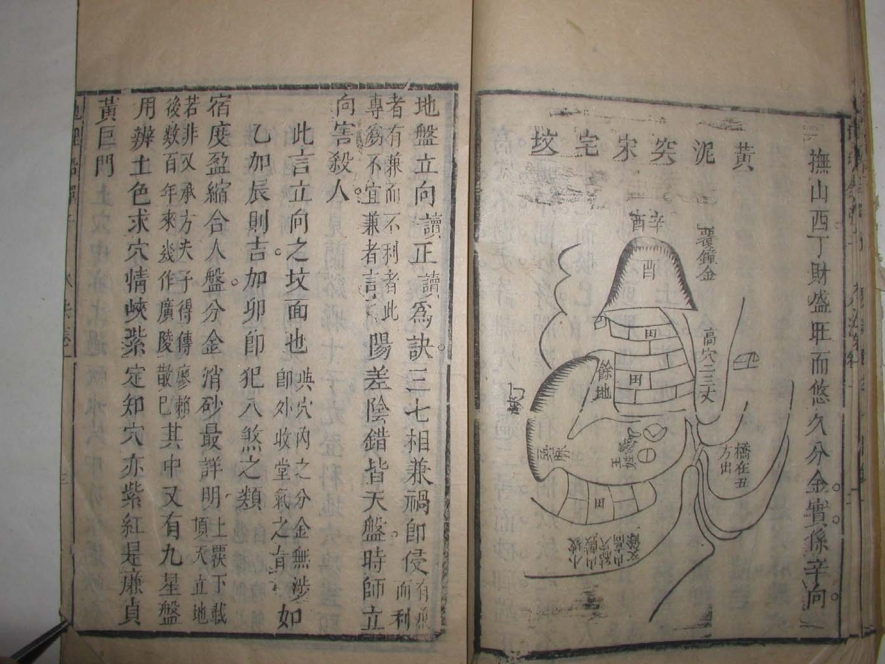 撫山酉丁財盛旺而悠久分金實係辛向
黃泥突宋宅坟
覆鐘金
辛酉
酉
高穴二三丈
田
田
餘地
橋在丑方出
田
地盤立向讀正讀爲訣三七相兼禍卽侵有兼而利
者有兼而不利者此專為不宜兼者言之陽差陰錯皆天盤時師立
向害殺人
此言立向之坟面也與穴內之分金無涉卽外收堂氣之如
乙加辰則吉加卯卽犯八煞之類
宿度盈縮合人盤分金消砂最詳明上下載頂天立地
若非又承方夫子得傳廖賴後數百年來幾作廣陵散已其中又有九星盤
用辨土色求穴情峽紫定知穴亦紫紅是廉貞
黃巨門